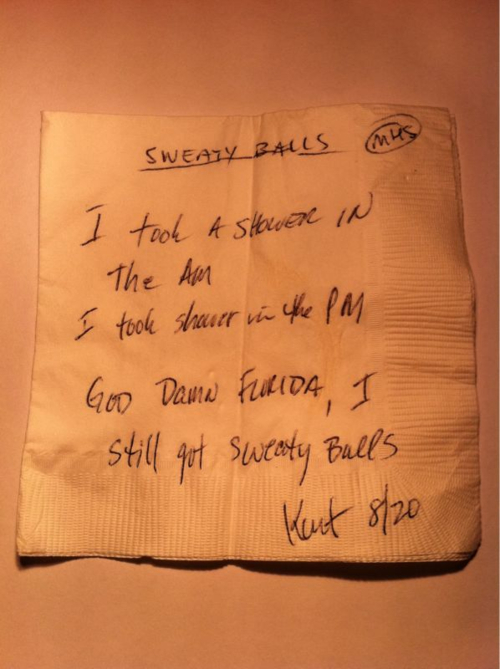 SWEATY BALLS MHS
I took A SHOWER IN
The AM
I took shower in the PM
GOD DAMN FLORIDA, I
still got sweaty Balls
Kent 8/20